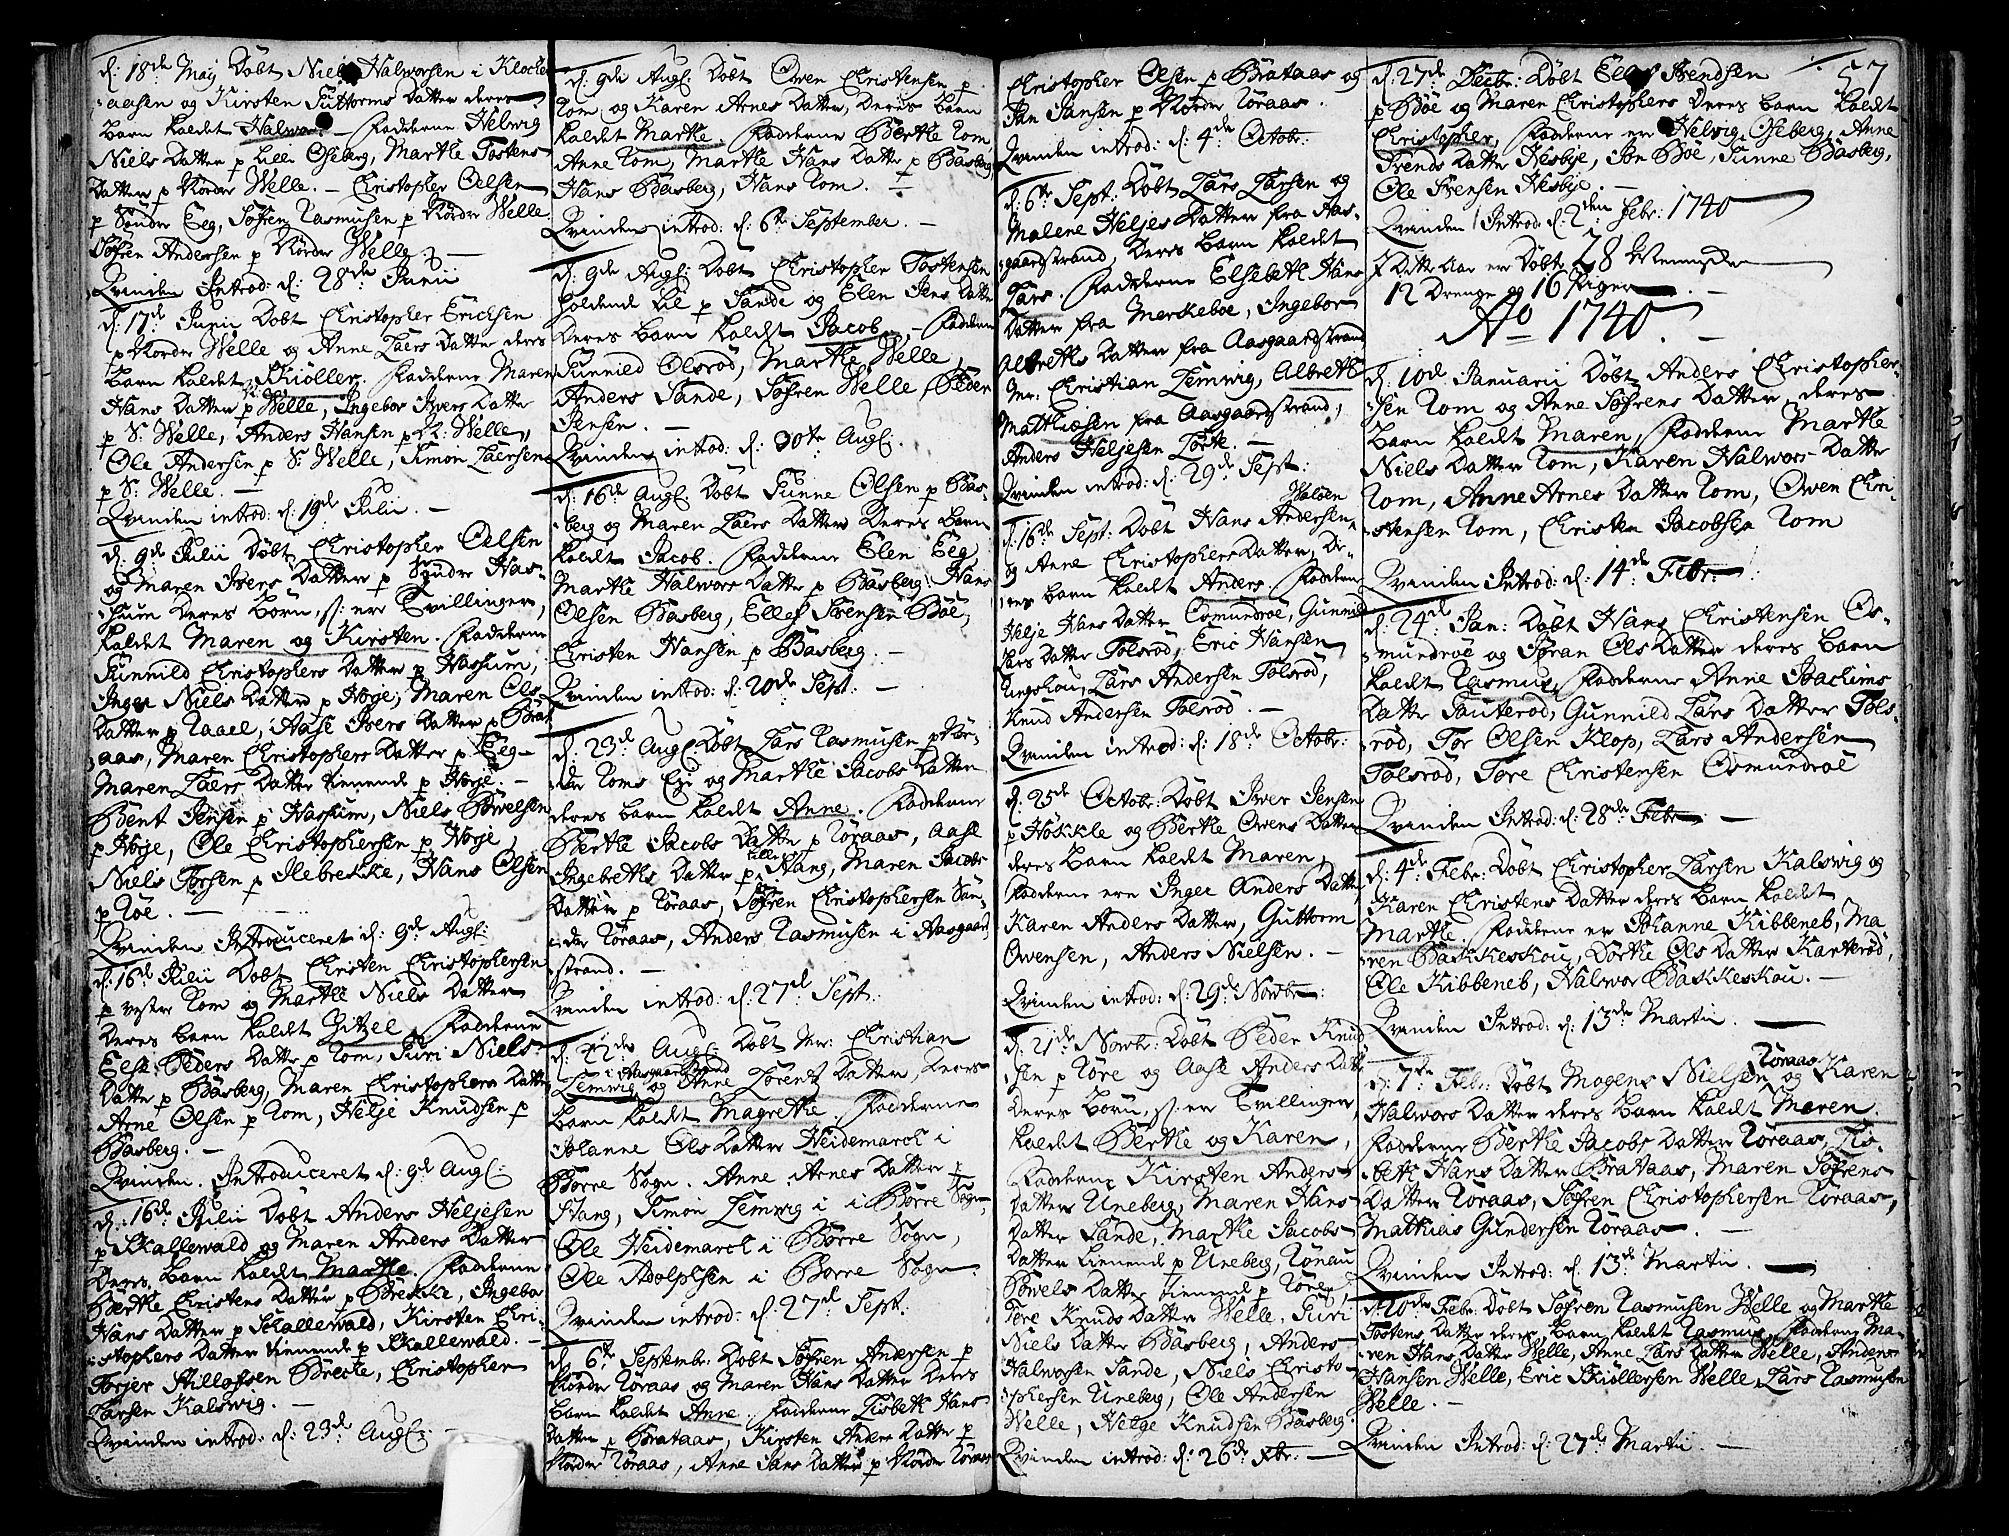 d: 18de Maij Döbt Niels Halworsen i Klocher
aasen og Kirsten Guttorms Datter deres
barn kaldet Halwor. Fadderne Helwig
Niels Datter p Lille Oseberg, Marthe Tostens
Datter p Nordre Welle. Christopher Oelsen
p Söndre Eeg, Söfren Rasmusen p Nordre Welle
Söfren Andersen p Nordre Welle.
Qvinden Introd: d: 28de Junii
d: 17de Junii Döbt Christopher Erichsen
p Nordre Welle og Anne Laers Datter deres
barn kaldet Skiöller. Fadderne Maren
Hans Datter p Welle, Ingebor Ivers Datter
p S: Welle, Anders Hansen p N: Welle,
Ole Andersen p S: Welle, Simon Laersen
p S: Welle.
Qvinden introd: d: 19de Julii.
d: 9de Julii Döbt Christopher Oelsen
og Maren Ivers Datter p Syndre Has-
sum deres Börn, s: er Tvillinger,
kaldet Maren og Kirsten. Fadderne
Gunnild Christophers Datter p Hassum,
Inger Niels Datter p Horje, Maren Ols
Datter p Raael, Aase Ivers Datter p Brat
aas, Maren Christophers Datter p Eeg
Maren Laers Datter tienende p Horje.
Bent Jensen p Hassum, Niels Böwelsen
p Horje, Ole Christophersen p Horje,
Niels Torsen p Ilebrekke, Hans Olsen
p Röe.
Qvinden Introduceret d: 9de Aug:
d: 16de Julii Döbt Christen Christophersen
p vester Rom og Marthe Niels Datter
Deres barn kaldet Zitzel, Fadderne
Eese Peders Datter p Rom, Guri Niels
Datter p Basberg, Maren Christophers Datter
Arne Olsen p Rom, Helje Knudsen p
Basberg.
Qvinden Introduceret d: 9de Aug:
d: 16de Julii Döbt Anders Heljesen
p Skallewald og Maren Anders Datter
Deres barn kaldet Marthe. Fadderne
Berthe Christens Datter p Brekke, Ingebor
Hans Datter p Skallewald, Kirsten Chri-
stophers Datter tienende p Skallewald.
Torjer Stillofsen Brecke, Christopher
Larsen Kalswig.
Qvinden introd: d: 23de Aug:
d: 9de Aug: Döbt Owen Christensen p
Rom og Karen Arnes Datter, Deres barn
kaldet Marthe. Fadderne Berthe Rom,
Anne Rom, Marthe Hans Datter p Basberg,
Hans Basberg, Hans Rom.
Qvinden introd: d: 6te September.
d: 9de Aug: Döbt Christopher Tostensen
holdende til p Sande og Elen Jens Datter
Deres barn kaldet Jacob, Fadderne
Gunnild Olsröd, Marthe Welle,
Anders Sande, Söfren Welle, Peder
Jensen.
Qvinden introd: d: 30te Aug:
d: 16de Aug: Döbt Gunne Olsen p Bas-
berg og Maren Laers Datter Deres barn
kaldet Jacob. Fadderne Elen Eeg
Marthe Halwors Datter p Basberg Hans
Olsen Basberg, Ellef Svensen Böe,
Christen Hansen p Basberg.
Qvinden introd: d: 20de Sept:
d: 23de Aug: Döbt Lars Rasmusen p Nor-
dre Roms Eje og Marthe Jacobs Datter
deres barn kaldet Anne. Fadderne
Berthe Jacobs Datter p Röraas, Aase
Ingebreths Datter p lille Hang, Maren Jacobs
Datter p Röraas, Söfren Christophersen Sön-
dre Röraas, Anders Rasmusen i Aasgaard
strand.
Qvinden introd: d: 27de Sept:
d: 22de Aug: Döbt Mr: Christian
Lemwig i Aasgaardstrand og Anne Lorentz Datter Deres
barn kaldet Magrethe. Fadderne
Johanne Ols Datter Heidemarck i
Borre Sogn. Anne Arnes Datter p
Stang, Simon Lemwig i Borre Sogn,
Ole Heidemarck i Borre Sogn,
Ole Adolphsen i Borre Sogn.
Qvinden introd: d: 27de Sept:
d: 6te Septembr: Döbt Söfren Andersen p
Nordre Röraas og Maren Hans Datter Deres
barn kaldet Anne. Fadderne Lisbeth Hans
Datter p Brataas, Kirsten Anders Datter p
Nordre Röraas, Anne Jans Datter p Nordre Röraas
Christopher Olsen p Brataas og
Jan Jansen p Nordre Röraas.
Qvinden introd: d: 4de Octobr:
d: 6te Sept: Döbt Lars Larsen og
Malene Heljes Datter fra Aas-
gaardstrand, Deres barn kaldet
Lars. Fadderne Elsebeth Hans
Datter fra Merkeboe, Ingebor
Albreths Datter fra Aasgaardstrand
Mr: Christian Lemwig, Albreth
Matthiosen fra Aasgaardstrand,
Anders Heljesen Lörke.
Qvinden introd: d: 29de Sept:
d: 16de Sept: Döbt Hans Andersen
og Anne Christophers Datter, De-
res barn kaldet Anders. Fadderne
Helje Hans Datter Osmundroe, Gunnild
Lars Datter Tolsröd, Eric Hansen
Ringshou, Lars Andersen Tolsröd,
Knud Andersen Tolsröd.
Qvinden introd: d: 18de Octobr:
d: 25de Octobr: Döbt Iver Jensen
p Hökkle og Berthe Owens Datter
deres barn kaldet Maren,
Fadderne ere Inger Anders Datter
Karen Anders Datter, Guttorm
Owensen, Anders Nielsen.
Qvinden introd: d: 29de Novbr:
d: 21de Novbr: Döbt Peder Knud
sen p Röre og Aase Anders Datter
Deres börn, s: er Tvillinger,
kaldet Berthe og Karen,
Fadderne Kirsten Anders
Datter Uneberg, Maren Hans
Datter Sande, Marthe Jacobs
Datter tienende p Uneberg, Rönau
Böwels Datter tienend p Röre,
Tore Knuds Datter Welle, Guri
Niels Datter Basberg, Anders
Halworsen Sande, Niels Christo-
phersen Uneberg, Ole Andersen
Welle, Helge Knudsen Basberg.
Qvinden introd: d: 26de Xbr:
57
d: 27de Decbr: Döbt Ellef Svendsen
p Böe og Maren Christophers deres barn kaldt
Christopher, Fadderne er Helwig Oseberg, Anne
Svends Datter Hesbye, Jon Böe, Gunne Basberg,
Ole Svensen Hesbye.
Qvinden Introd: d: 2den Febr: 1740
I Dette Aar er Döbt 28 Mennisker
12 Drenge og 16 Piger
Ao 1740.
d: 10de Januarii Döbt Anders Christopher-
sen Rom og Anne Söfrens Datter, deres
barn kaldt Maren, Fadderne Marthe
Niels Datter Rom, Karen Halwors Datter
Rom, Anne Arnes Datter Rom, Owen Chri-
stensen Rom, Christen Jacobsen Rom
Qvinden Introd: d: 14de Febr:
d: 24de Jan: Döbt Hans Christensen Os-
mundroe og Joran Ols Datter deres barn
kaldet Rasmus, Fadderne Anne Joachims
Datter Sauterod, Gunnild Lars Datter Tols-
röd, Tor Olsen Klop, Lars Andersen
Tolsröd, Tore Christensen Osmundroe
Qvinden Introd: d: 28de Febr:
d: 4de Febr: Döbt Christopher Larsen Kalswig og
Karen Christens Datter deres barn kaldet
Marthe, Fadderne er Johanne Kibbeneb, Ma-
ren Bakkeskou, Dorthe Ols Datter Karterod,
Ole Kibbeneb, Halwor Bakkeskou.
Qvinden Introd: d: 13de Martii.
d: 7de Febr: Döbt Mogens Nielsen Röraas og Karen
Halwors Datter deres barn kaldt Maren.
Fadderne Berthe Jacobs Datter Röraas, Lis-
beth Hans Datter Brataas, Maren Söfrens
Datter Röraas, Söfren Christophersen Röraas,
Matthias Gundersen Röraas.
Qvinden Introd: d: 13de Martii.
d: 10de Febr: Döbt Söfren Rasmusen Welle og Marthe
Tostens Datter deres barn kaldet Rasmus, Fadderne Ma-
ren Hans Datter Welle, Anne Lars Datter Welle, Anders
Hansen Welle, Eric Skiöllersen Welle, Lars Rasmusen
Welle.
Qvinden Introd: d: 27de Martii.